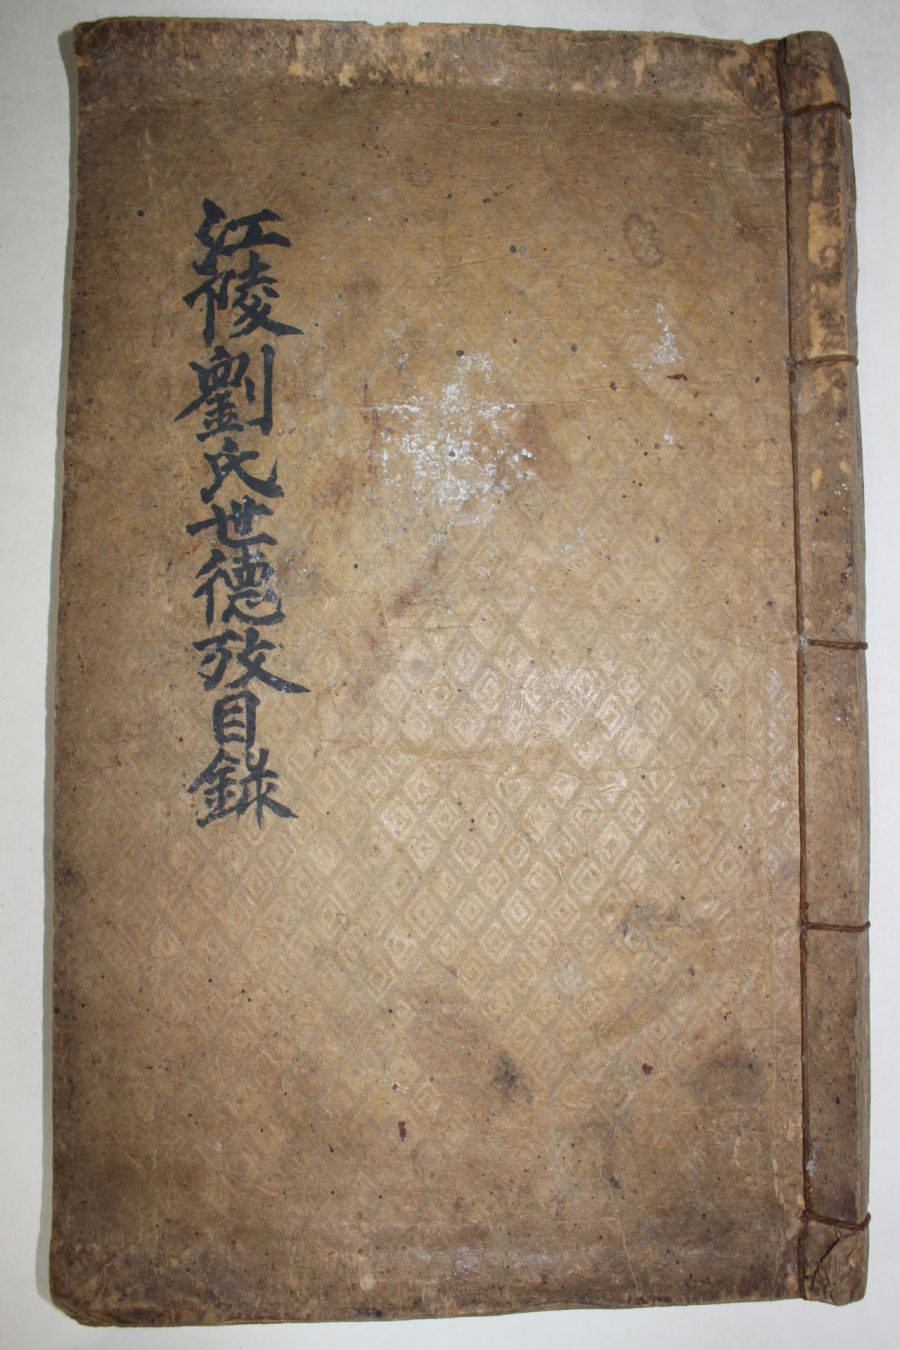 江陵劉氏世德攷目錄